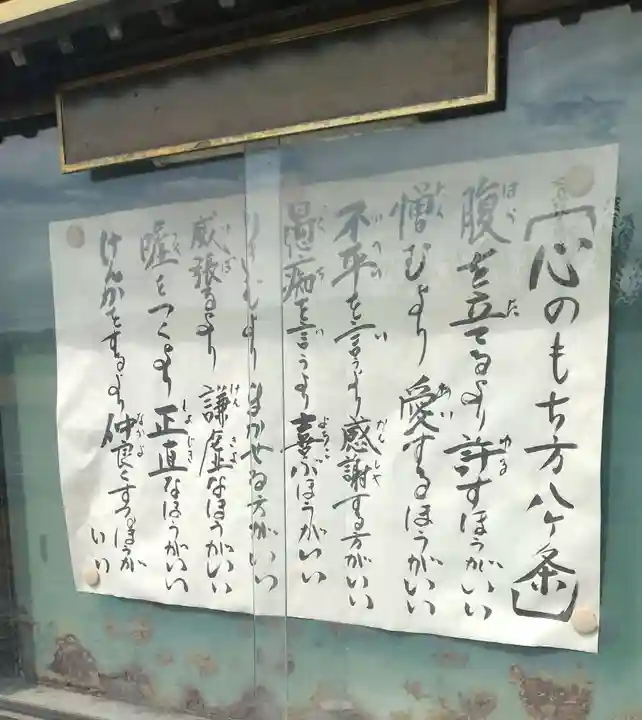 「心のもち方八ヶ条」
腹を立てるより許すほうがいい
憎むより愛するほうがいい
不平を言うより感謝する方がいい
愚痴を言うより喜ぶほうがいい
りきむよりまかせる方がいい
威張るより謙虚なほうがいい
嘘をつくより正直なほうがいい
けんかをするより仲良くするほうがいい